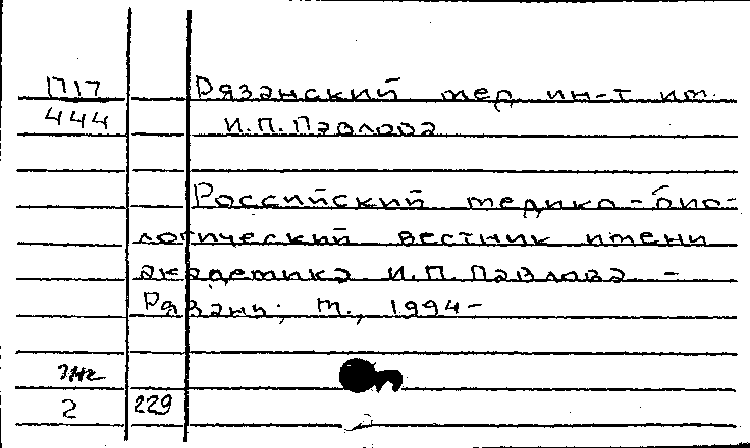 П17 Рязанский мед ин-т им.
444 И.П.Павлова
Российский медико-био-
логический вестник имени
академика И.П.Павлова -
Рязань; М., 1994-
2 229